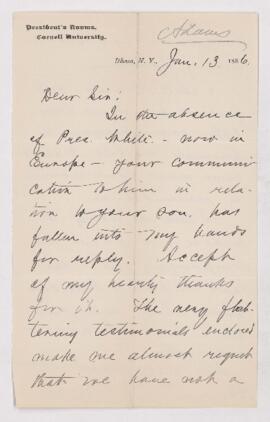 President's Rooms,
Cornell University.
Adams
Ithaca, N. Y., Jan. 13 1886.
Dear Sir:
In the absence
of Pres. White - now in
Europe - your communi
cation to him in rela-
tion to your son, has
fallen into my hands
for reply. Accept
of my hearty thanks
for it. The very flat-
tering testimonials enclosed
make me almost regret
that we have not a